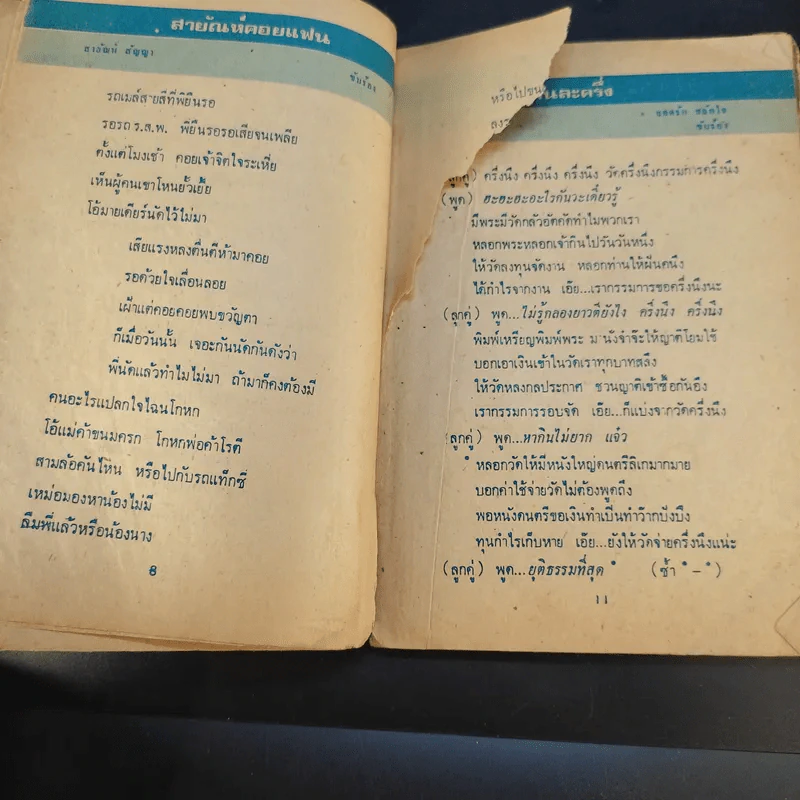 สายัณห์คอยแฟน
สายัณห์ สัญญา
ขับร้อง
รถเมล์สายสี่ที่พี่ยืนรอ
รอรถ ร.ส.พ. พี่ยืนรอรอเสียจนเพลีย
ตั้งแต่โมงเช้า คอยเจ้าจิตใจระเหี่ย
เห็นผู้คนเขาโหนยั้วเยี้ย
โอ้มายเดียร์นัดไว้ไม่มา
เสียแรงหลงตื่นตีห้ามาคอย
รอด้วยใจเลื่อนลอย
เฝ้าแต่คอยคอยพบขวัญตา
ก็เมื่อวันนั้น เจอะกันนัดกันดังว่า
พี่นัดแล้วทำไมไม่มา ถ้ามาก็คงต้องมี
คนอะไรแปลกใจไฉนโกหก
โอ้แม่ค้าขนมครก โกหกพ่อค้าโรตี
สามล้อคันไหน หรือไปกับรถแท็กซี่
เหม่อมองหาน้องไม่มี
ลืมพี่แล้วหรือน้องนาง
8
หรือไปขน
นละครึ่ง
ยอดรัก สลักใจ
ขับร้อง
(ลูกคู่) ครึ่งนึง ครึ่งนึง ครึ่งนึง วัดครึ่งนึงกรรมการครึ่งนึง
(พูด) ฮะฮะฮะอะไรกันวะเดี๋ยวรู้
มีพระมีวัดกลัวอัตคัดทำไมพวกเรา
หลอกพระหลอกเจ้ากินไปวันวันหนึ่ง
ให้วัดลงทุนจัดงาน หลอกท่านให้ฝันคนึง
ได้กำไรจากงาน เอ๊ย...เรากรรมการขอครึ่งนึงนะ
(ลูกคู่) พูด...ไม่รู้กลองยาวตียังไง ครึ่งนึง ครึ่งนึง
พิมพ์เหรียญพิมพ์พระ มานั่งจำจ๊ะให้ญาติโยมใช้
บอกเอาเงินเข้าในวัดเราทุกบาทสลึง
ให้วัดหลงกลประกาศ ชวนญาติเช้าซื้อกันอึง
เรากรรมการรอบจัด เอ๊ย...ก็แบ่งจากวัดครึ่งนึง
(ลูกคู่) พูด...หากินไม่ยาก แจ๋ว
* หลอกวัดให้มีหนังใหญ่ดนตรีลิเกมากมาย
บอกค่าใช้จ่ายวัดไม่ต้องพูดถึง
พอหนังดนตรีขอเงินทำเป็นทำว๊ากบังบึง
ทุนกำไรเก็บหาย เอ๊ย...ยังให้วัดจ่ายครึ่งนึงแน่ะ
(ลูกคู่) พูด...ยุติธรรมที่สุด * (ซ้ำ * - *)
11